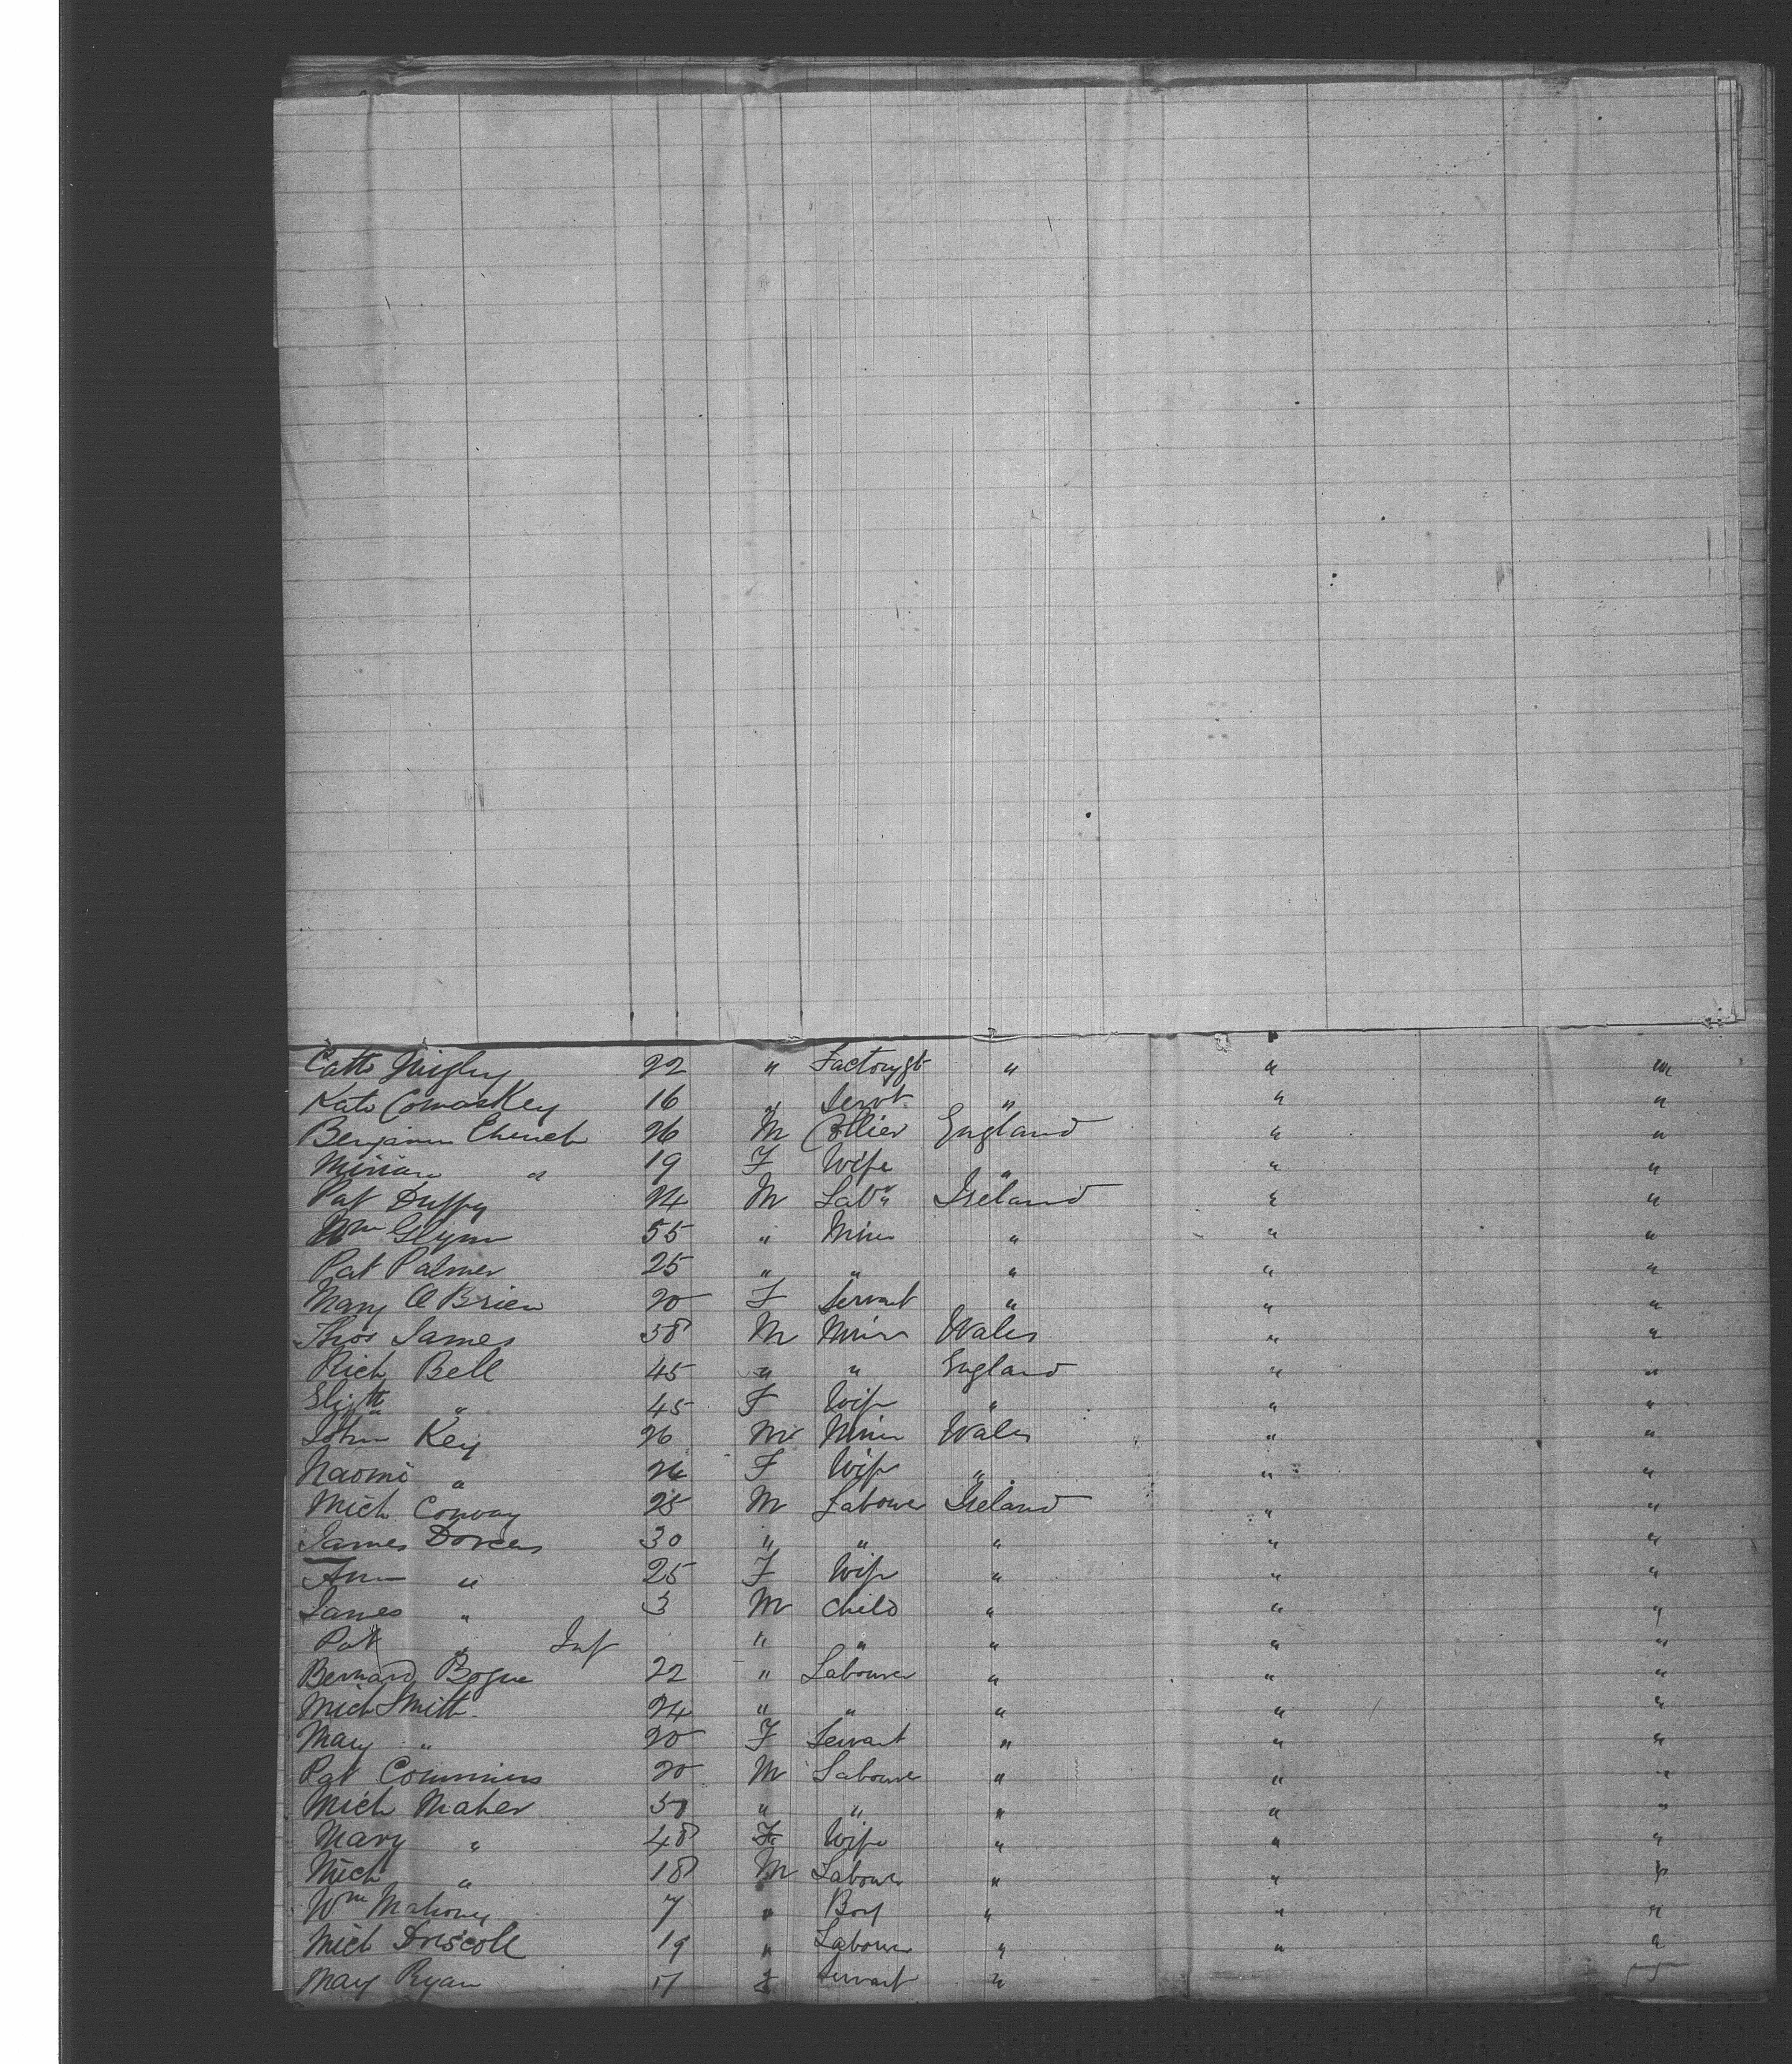 Cath Quigley 22 " Factory gl " " "
Kate Comaskey 16 " Servt " " "
Benjamin Church 26 M Collier England " "
Miriam " 19 F Wife " " "
Pat Duffy 24 M Labr Ireland " "
Wm Glynn 55 " Miner " " "
Pat Palmer 25 " " " " "
Mary O Brien 20 F Servant " " "
Thos James 38 M Miner Wales " "
Rich Bell 45 " " England " "
Elizth " 45 F Wife " " "
John Key 26 M Miner Wales " "
Naomi " 24 F Wife " " "
Mich Conway 25 M Labourer Ireland " "
James 30 " " " " "
Ann " 25 F Wife " " "
James " 3 M Child " " "
Pat " Inf " " " " "
Bernard Bogue 22 " Labourer " " "
Mich Smith 24 " " " " "
Mary " 20 F Servant " " "
Pat Commins 20 M Labourer " " "
Mich Maher 50 " " " " "
Mary " 48 F Wife " " "
Mich " 18 M Labourer " " "
Wm Mahony 7 " Boy " " "
Mich Driscoll 19 " Labourer " " "
Mary Ryan 17 F Servant " 55